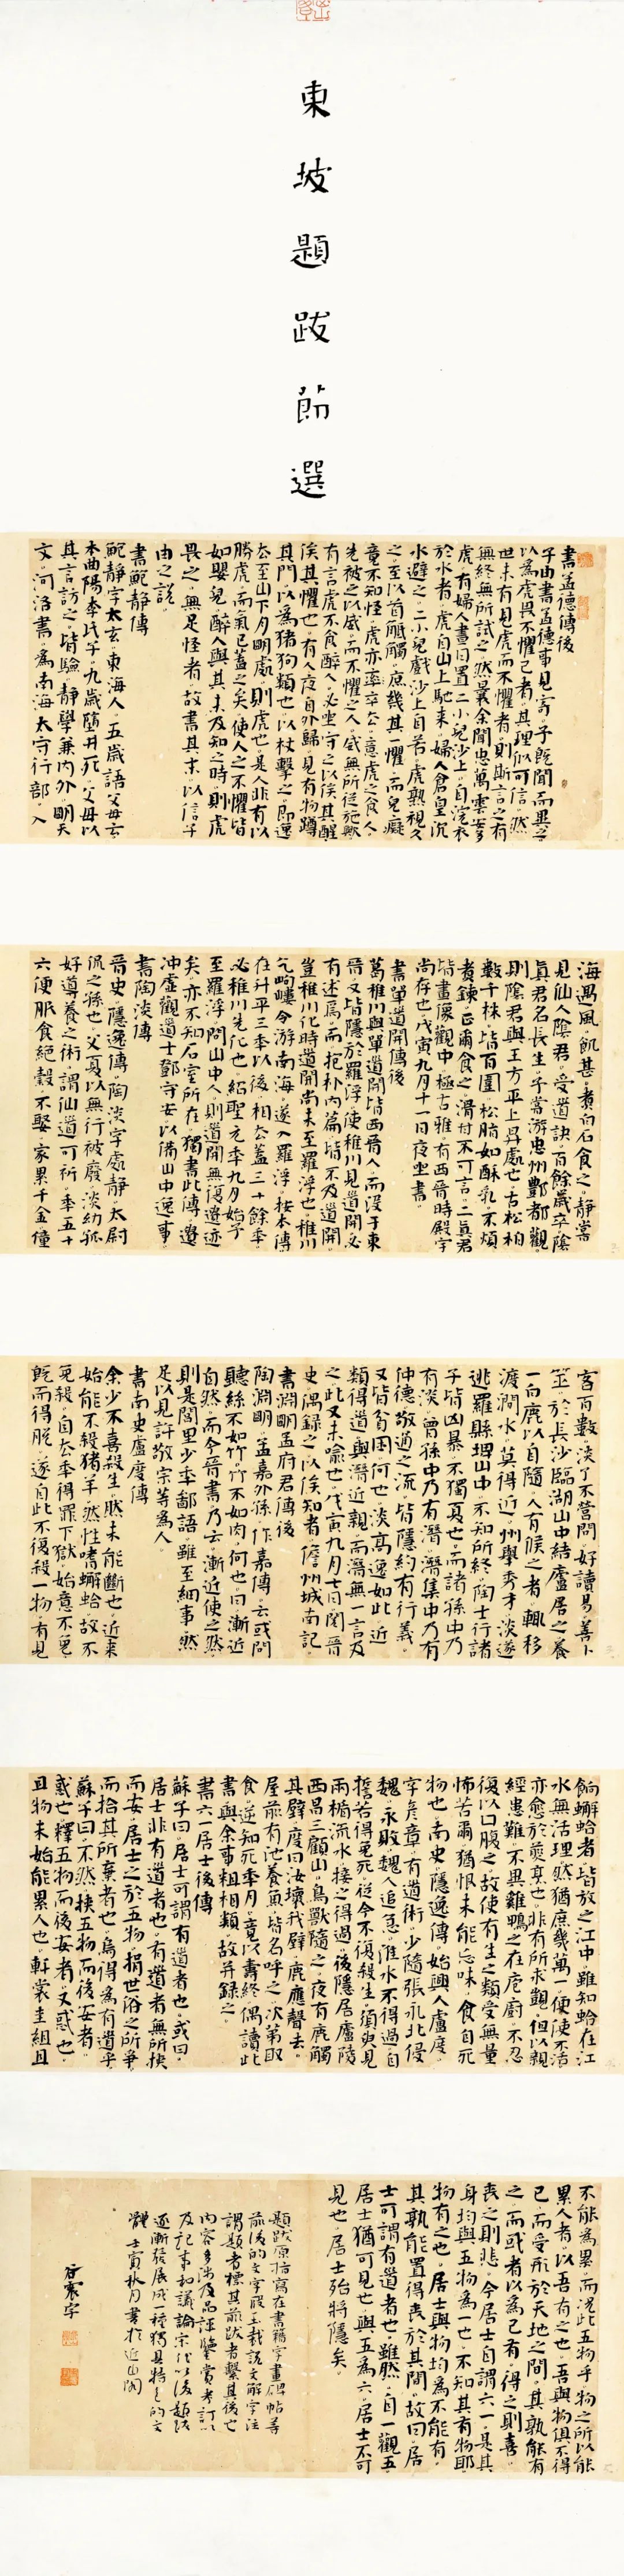 東坡題跋節選
書孟德傳後
子由書孟德事見寄予既聞而異之
以為虎畏不懼己者其理似可信然
世未有見虎而不懼者則斯言之有
無終無所試之然曩余聞忠萬雲安多
虎有婦人晝日置二小兒沙上自浣衣
於水者虎自山上馳來婦人倉皇沉
水避之二小兒戲沙上自若虎熟視久
之至以首觝觸庶幾其一懼而兒癡
竟不知怪虎亦率卒去意虎之食人
先被之以威而不懼之人威無所從施歟
有言虎不食醉人必坐守之以俟其醒
俟其懼也有人夜自外歸見有物蹲
其門以為豬狗類也以杖擊之即逸
去至山下月明處則虎也是人非有以
勝虎而氣已蓋之矣使人之不懼皆
如嬰兒醉人與其未及知之時則虎
畏之無足怪者故書其末以信子
由之說
書鮑靜傳
鮑靜字太玄東海人五歲語父母云
本曲陽李氏子九歲墮井死父母以
其言訪之皆驗靜學兼內外明天
文河洛書為南海太守行部入
海遇風飢甚煮白石食之靜嘗
見仙人陰君受道訣百餘歲卒陰
真君名長生予嘗游忠州酆都觀
則陰君與王方平上昇處也古松柏
數千株皆百圍松脂如酥乳不煩
煮鍊正爾食之滑甘不可言二真君
皆畫像觀中極古雅有西晉時殿宇
尚存也戊寅九月十一日夜坐書
書單道開傳後
葛稚川與單道開皆西晉人而沒于東
晉又皆隱於羅浮使稚川見道開必
有述焉而抱朴內篇皆不及道開
豈稚川化時道開尚未至羅浮也稚川
乞岣嶁令游南海遂入羅浮按本傳
在升平三年以後相去蓋三十餘年
必稚川先化也紹聖元年九月始予
至羅浮問山中人則道開無復遺迹
矣亦不知石室所在獨書此傳遺
沖虛觀道士鄧守安以備山中逸事
書陶淡傳
晉史隱逸傳陶淡字處靜太尉
侃之孫也父夏以無行被廢淡幼孤
好導養之術謂仙道可祈年五十
六便服食絕穀不娶家累千金僮
客百數淡了不營問好讀易善卜
筮於長沙臨湖山中結廬居之養
一白鹿以自隨人有候之者輒移
渡澗水莫得近州舉秀才淡遂
逃羅縣埋山中不知所終陶士行諸
子皆凶暴不獨夏也而諸孫中乃
有淡曾孫中乃有潛潛集中乃有
仲德敬通之流皆隱約有行義
又皆貧困何也淡高逸如此近
類得道與潛近親而潛無一言及
之此又未喻也戊寅九月七日閱晉
史偶錄之以俟知者儋州城南記
書淵明孟府君傳後
陶淵明孟嘉外孫作嘉傳云或問
聽絲不如竹竹不如肉何也曰漸近
自然而今晉書乃云漸近使之然
則是閭里少年鄙語雖至細事然
足以見許敬宗等為人
書南史盧度傳
余少不喜殺生然未能斷也近來
始能不殺豬羊然性嗜蠏蛤故不
免殺自去年得罪下獄始意不免
既而得脫遂自此不復殺一物有見
餉蠏蛤者皆放之江中雖知蛤在江
水無活理然猶庶幾萬一便使不活
亦愈於煎烹也非有所求觀但以親
經患難不異雞鴨之在庖廚不忍
復以口腹之故使有生之類受無量
怖苦爾猶恨未能忘味食自死
物也南史隱逸傳始興人盧度
字彥章有道術少隨張永北侵
魏永敗魏人追急淮水不得過自
誓若得免死從今不復殺生須臾見
兩楯流水接之得過後隱居廬陵
西昌三顧山鳥獸隨之夜有鹿觸
其壁度曰汝壞我壁鹿應聲去
屋前有池養魚皆名呼之次第取
食逆知死年月竟以壽終偶讀此
書與余事粗相類故并錄之
書六一居士後傳
蘇子曰居士可謂有道者也或曰
居士非有道者也有道者無所挾
而安居士之於五物捐世俗之所爭
而拾其所棄者也烏得為有道乎
蘇子曰不然挾五物而後安者
惑也釋五物而後安者又惑也
且物未始能累人也軒裳圭組且
不能為累而況此五物乎物之所以能
累人者以吾有之也吾與物俱不得
已而受形於天地之間其孰能有
之而或者以為己有得之則喜
喪之則悲今居士自謂六一是其
身均與五物為一也不知其有物耶
物有之也居士與物均為不能有
其孰能置得喪於其間故曰居
士可謂有道者也雖然自一觀五
居士猶可見也與五為六居士不可
見也居士殆將隱矣
題跋原指寫在書籍字畫碑帖等
前後的文字段玉裁說文解字注
謂題者標其前跋者繫其後也
內容多涉及品評鑒賞考訂以
及記事和議論宋代以後題跋
逐漸發展成一種獨具特色的文
體壬寅秋月書於近山閣